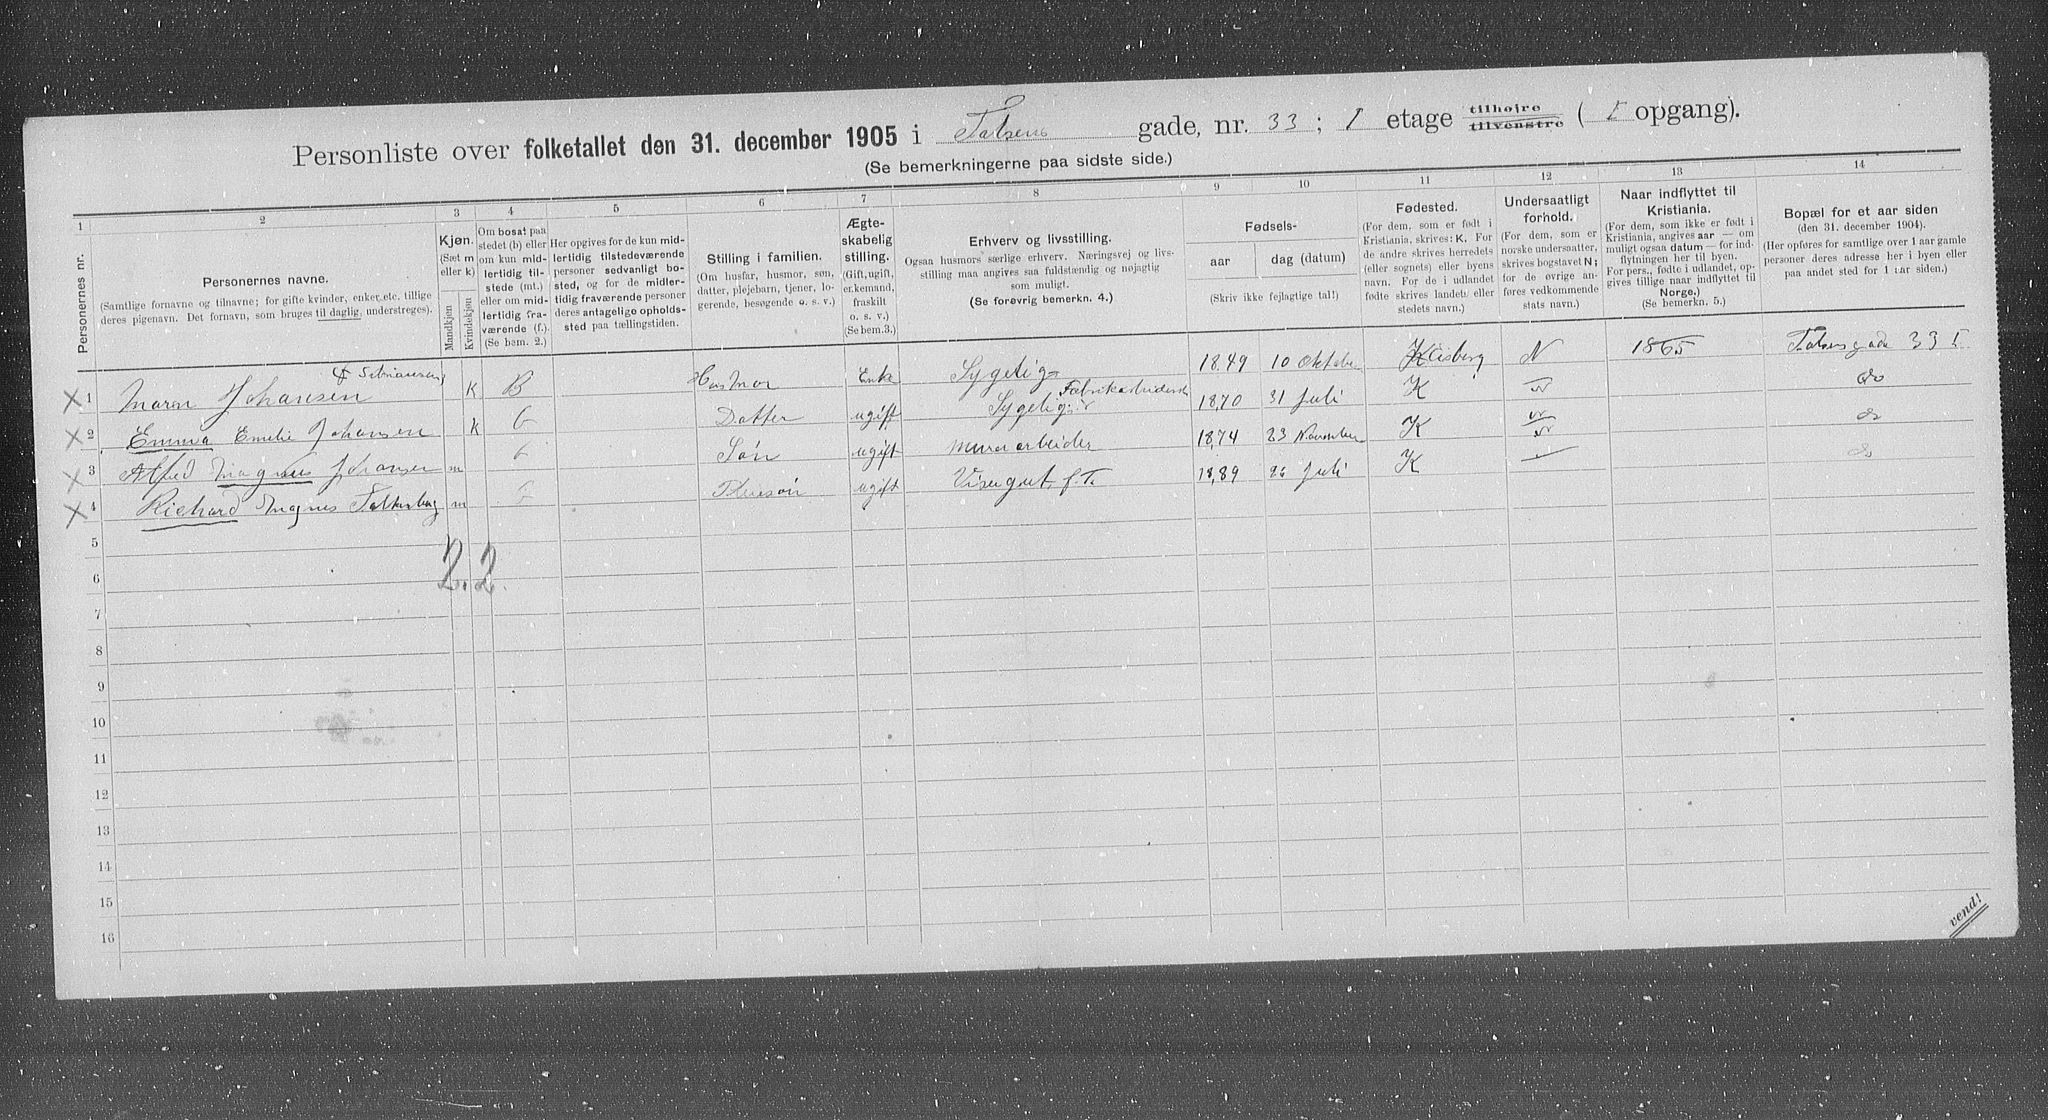 Personliste over folketallet den 31. december 1905 i Falsens gade, nr. 33 ; 1 etage tilhøire tilvenstre ( I opgang).
(Se bemerkningerne paa sidste side.)
1 2 3 4 5 6 7 8 9 10 11 12 13 14
Personernes nr.
Personernes navne.
(Samtlige fornavne og tilnavne; for gifte kvinder, enker, etc. tillige
deres pigenavn. Det fornavn, som bruges til daglig, understreges).
Kjøn.
(Sæt m
eller k)
Mandkjøn
Kvindekjøn
Om bosat paa
stedet (b) eller
om kun mid-
lertidig til-
stede (mt.)
eller om mid-
lertidig fra-
værende (f.)
(Se bem. 2.)
Her opgives for de kun mid-
lertidig tilstedeværende
personer sedvanligt bo-
sted, og for de midler-
tidig fraværende personer
deres antagelige opholds-
sted paa tællingstiden.
Stilling i familien.
(Om husfar, husmor, søn,
datter, plejebarn, tjener, lo-
gerende, besøgende o. s. v.)
Ægte-
skabelig
stilling.
(Gift, ugift,
enkemand,
fraskilt
o. s. v.)
(Se bem.3.)
Erhverv og livsstilling.
Ogsaa husmors' særlige erhverv. Næringsvej og livs-
stilling maa angives saa fuldstændig og nøjagtig
som muligt.
(Se forøvrig bemerkn. 4.)
Fødsels-
aar
dag (datum)
(Skriv ikke fejlagtige tal!)
Fødested.
(For dem, som er født i
Kristiania, skrives: K. For
de andre skrives herredets
(eller sognets) eller byens
navn. For de i udlandet
fødte skrives landets eller
stedets navn.)
Undersaatligt
forhold.
(For dem, som er
norske undersaatter,
skrives bogstavet N;
for de øvrige an-
føres vedkommende
stats navn.)
Naar indflyttet til
Kristiania.
(For dem, som ikke er født i
Kristiania, angives aar — om
muligt ogsaa datum — for ind-
flytningen her til byen.
For pers., fødte i udlandet, op-
gives tillige naar indflyttet til
Norge.)
(Se bemerkn. 5.)
Bopæl for et aar siden
(den 31. december 1904).
(Her opføres for samtlige over 1 aar gamle
personer deres adresse her i byen eller
paa andet sted for 1 aar siden.)
1 Maren Johansen K B Husmor Enke Sygelig 1849 10 Oktober N 1865 Falsensgade 33 I
2 Emma Emelie Johansen K Datter ugift Sygelig Fabrikarbeiderske 1870 31 Juli K do
3 Alfred Magnus Johansen m Søn ugift Murerarbeider 1874 23 November K do
4 Richard Magnus Falkenberg m Pleiesøn ugift Visergut 1889 Juli K
5
2. 2.
6
7
8
9
10
11
12
13
14
15
16
vend!